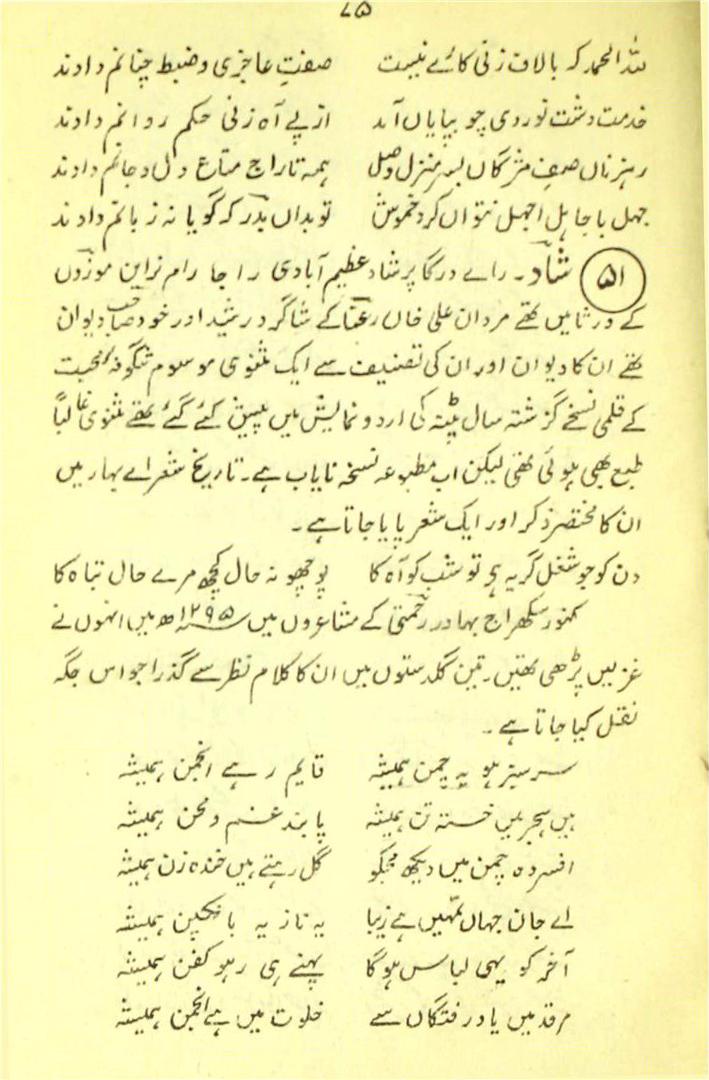 ۷۵
للہ الحمد کہ بالاف زنی کائے نیست صفتِ عاجزی و ضبط چنانم دادند
خدمت دشت نوردی چو بپایاں آمد از پے آہ زنی حکم روانم دادند
رہزناں صفِ مژگاں بسر منزل وصل ہمہ تاراج متاع دل و جانم دادند
جہل باجاہل اجہل نتواں کرد خموش تو بداں بدر کہ گویا نہ زبانم دادند
(۵۱) شاد۔ راے درگا پرشاد عظیم آبادی راجا رام نراین موزوں
کے ورثا میں تھے مردان علی خاں رعنا کے شاگرد رشید اور خود صاحب دیوان
تھے ان کا دیوان اور ان کی تصنیف سے ایک مثنوی موسوم شگوفۂ محبت
کے قلمی نسخے گزشتہ سال پٹنہ کی اردو نمایش میں پیش کئے گئے تھے مثنوی غالباً
طبع بھی ہوئی تھی لیکن اب مطبوعہ نسخہ نایاب ہے۔ تاریخ شعراے بہار میں
ان کا مختصر ذکر اور ایک شعر پایا جاتا ہے۔
دن کو جو شغل گریہ ہے تو شب کو آہ کا پوچھو نہ حال کچھ مرے حال تباہ کا
کنور سکھراج بہادر رحمتی کے مشاعروں میں ۱۲۹۵ھ میں انہوں نے
غزلیں پڑھی تھیں۔ تین گلدستوں میں ان کا کلام نظر سے گذرا جو اس جگہ
نقل کیا جاتا ہے۔
سرسبز ہو یہ چمن ہمیشہ قایم رہے انجمن ہمیشہ
ہیں ہجر میں خستہ تن ہمیشہ پابند غم و محن ہمیشہ
افسردہ چمن میں دیکھ مجکو گل رہتے ہیں خندہ زن ہمیشہ
اے جان جہاں تمہیں ہے زیبا یہ ناز یہ بانکپن ہمیشہ
آخر کو یہی لباس ہوگا پہنے ہی رہو کفن ہمیشہ
مرقد میں یاد رفتگاں سے خلوت میں ہے انجمن ہمیشہ